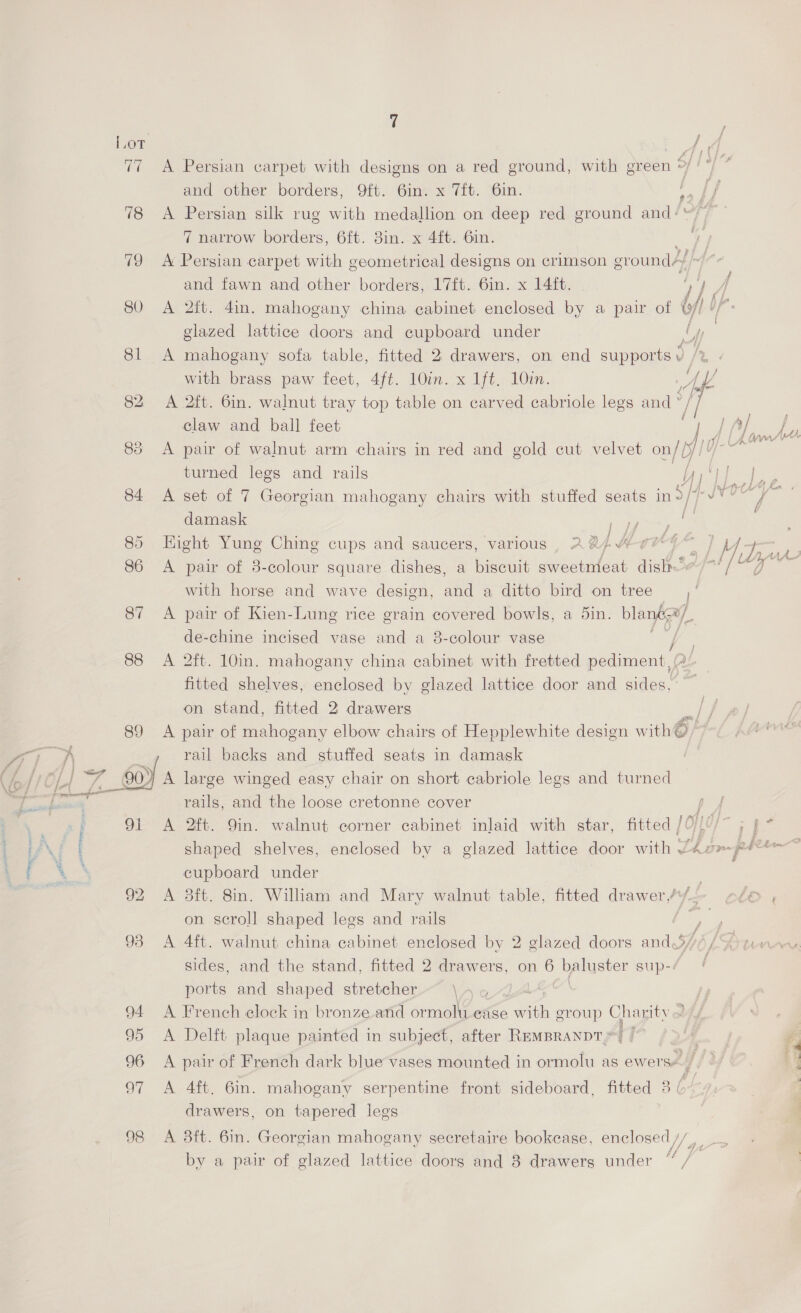 7
LOT
77 A Persian carpet with designs on a red ground, with green
and other borders, 9ft. 6in. x 7ft. 6in.
78 A Persian silk rug with medallion on deep red ground and
7 narrow borders, 6ft. 3in. x 4ft. 6in.
79 A Persian carpet with geometrical designs on crimson ground
and fawn and other borders, 17ft. 6in. x 14ft.
80 A 2ft. 4in. mahogany china cabinet enclosed by a pair of
glazed lattice doors and cupboard under
81 A mahogany sofa table, fitted 2 drawers, on end supports
with brass paw feet, 4ft. 10in. x 1ft. 10in.
82 A 2ft. 6in. walnut tray top table on carved cabriole legs and
claw and ball feet
83 A pair of walnut arm chairs in red and gold cut velvet on
turned legs and rails
84 A set of 7 Georgian mahogany chairs with stuffed seats in
damask
85 Eight Yung Ching cups and saucers, various
86 A pair of 3-colour square dishes, a biscuit sweetmeat dish
with horse and wave design, and a ditto bird on tree
87 A pair of Kien-Lung rice grain covered bowls, a 5in. blanc-
de-chine incised vase and a 3-colour vase
88 A 2ft. 10in. mahogany china cabinet with fretted pediment,
fitted shelves, enclosed by glazed lattice door and sides,
on stand, fitted 2 drawers
89 A pair of mahogany elbow chairs of Hepplewhite design with
rail backs and stuffed seats in damask
90 A large winged easy chair on short cabriole legs and turned
rails, and the loose cretonne cover
91 A 2ft. 9in. walnut corner cabinet inlaid with star, fitted
shaped shelves, enclosed by a glazed lattice door with
cupboard under
92 A 3ft. 8in. William and Mary walnut table, fitted drawer,
on scroll shaped legs and rails
93 A 4ft. walnut china cabinet enclosed by 2 glazed doors and
sides, and the stand, fitted 2 drawers, on 6 baluster sup-
ports and shaped stretcher
94 A French clock in bronze and ormolu case with group Charity
95 A Delft plaque painted in subject, after REMBRANDT
96 A pair of French dark blue vases mounted in ormolu as ewers
97 A 4ft. 6in. mahogany serpentine front sideboard, fitted 3
drawers, on tapered legs
98 A 3ft. 6in. Georgian mahogany secretaire bookcase, enclosed
by a pair of glazed lattice doors and 3 drawers under